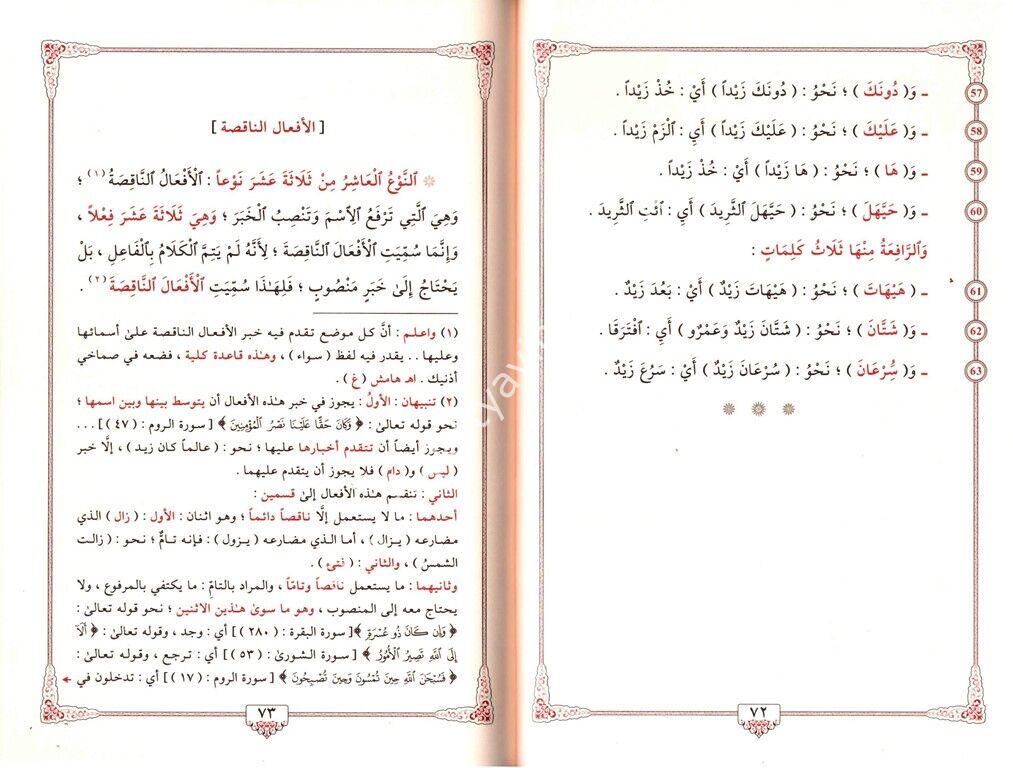 57 ـ وَ( دُونَكَ ) ؛ نَحْوُ : ( دُونَكَ زَيْداً ) أَيْ : خُذْ زَيْداً .
58 ـ وَ( عَلَيْكَ ) ؛ نَحْوُ : ( عَلَيْكَ زَيْداً ) أَيِ : ٱلْزَمْ زَيْداً .
59 ـ وَ( هَا ) ؛ نَحْوُ : ( هَا زَيْداً ) أَيْ : خُذْ زَيْداً .
60 ـ وَ( حَيَّهَلَ ) ؛ نَحْوُ : ( حَيَّهَلَ ٱلثَّرِيدَ ) أَيِ : ٱئْتِ ٱلثَّرِيدَ .
وَٱلرَّافِعَةُ مِنْهَا ثَلَاثُ كَلِمَاتٍ :
61 ـ ( هَيْهَاتَ ) ؛ نَحْوُ : ( هَيْهَاتَ زَيْدٌ ) أَيْ : بَعُدَ زَيْدٌ .
62 ـ وَ( شَتَّانَ ) ؛ نَحْوُ : ( شَتَّانَ زَيْدٌ وَعَمْرٌو ) أَيِ : ٱفْتَرَقَا .
63 ـ وَ( سُِرْعَانَ ) ؛ نَحْوُ : ( سُرْعَانَ زَيْدٌ ) أَيْ : سَرُعَ زَيْدٌ .
٧٢
[ الأفعال الناقصة ]
ٱلنَّوْعُ ٱلْعَاشِرُ مِنْ ثَلَاثَةَ عَشَرَ نَوْعاً : ٱلْأَفْعَالُ ٱلنَّاقِصَةُ (١) ؛
وَهِيَ ٱلَّتِي تَرْفَعُ ٱلِٱسْمَ وَتَنْصِبُ ٱلْخَبَرَ ؛ وَهِيَ ثَلَاثَةَ عَشَرَ فِعْلاً ،
وَإِنَّمَا سُمِّيَتِ ٱلْأَفْعَالَ ٱلنَّاقِصَةَ ؛ لِأَنَّهُ لَمْ يَتِمَّ ٱلْكَلَامُ بِٱلْفَاعِلِ ، بَلْ
يَحْتَاجُ إِلَىٰ خَبَرٍ مَنْصُوبٍ ؛ فَلِهَـٰذَا سُمِّيَتِ ٱلْأَفْعَالَ ٱلنَّاقِصَةَ (٢) .
(١) واعلم : أنَّ كل موضع تقدم فيه خبر الأفعال الناقصة علىٰ أسمائها
وعليها .. يقدر فيه لفظ ( سواء ) ، وهـٰذه قاعدة كلية ، فضعه في صماخي
أذنيك . اهـ هامش ( غ ) .
(٢) تنبيهان : الأولُ : يجوز في خبر هـٰذه الأفعال أن يتوسط بينها وبين اسمها ؛
نحو قوله تعالىٰ : ﴿ وَكَانَ حَقًّا عَلَيْنَا نَصْرُ الْمُؤْمِنِينَ ﴾ [ سورة الروم : ( ٤٧ )] ...
ويجوز أيضاً أن تتقدم أخبارها عليها ؛ نحو : ( عالماً كان زيد ) ، إلَّا خبر
( ليس ) و( دام ) فلا يجوز أن يتقدم عليهما .
الثاني : تنقسم هـٰذه الأفعال إلىٰ قسمين :
أحدهما : ما لا يستعمل إلَّا ناقصاً دائماً ؛ وهو اثنان : الأول : ( زال ) الذي
مضارعه ( يزال ) ، أما الذي مضارعه ( يزول ) : فإنه تامٌ ؛ نحو : ( زالت
الشمسُ ) ، والثاني : ( فتئ ) .
وثانيهما : ما يستعمل ناقصاً وتامّاً ، والمراد بالتامّ : ما يكتفي بالمرفوع ، ولا
يحتاج معه إلى المنصوب ، وهو ما سوىٰ هـٰذين الاثنين ؛ نحو قوله تعالىٰ :
﴿ وَإِن كَانَ ذُو عُسْرَةٍ ﴾[ سورة البقرة : ( ٢٨٠ )] أي : وجد ، وقوله تعالىٰ : ﴿ أَلَآ
إِلَى اللَّهِ تَصِيرُ الْأُمُورُ ﴾ [ سورة الشورىٰ : ( ٥٣ )] أي : ترجع ، وقوله تعالىٰ :
﴿ فَسُبْحَـٰنَ اللَّهِ حِينَ تُمْسُونَ وَحِينَ تُصْبِحُونَ ﴾ [ سورة الروم : ( ١٧ )] أي : تدخلون في
٧٣